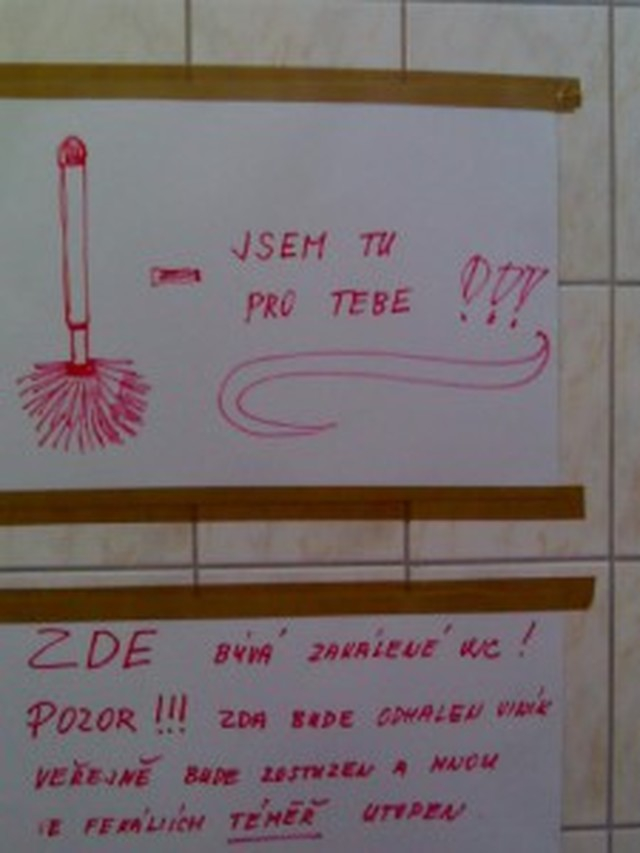 - JSEM TU
PRO TEBE !!!
ZDE BÝVÁ ZAKÁLENÉ WC !
POZOR !!! ZDA BUDE ODHALEN VINÍK
VEŘEJNĚ BUDE ZOSTUZEN A MNOU
VE FEKÁLIÍCH TÉMĚŘ UTOPEN